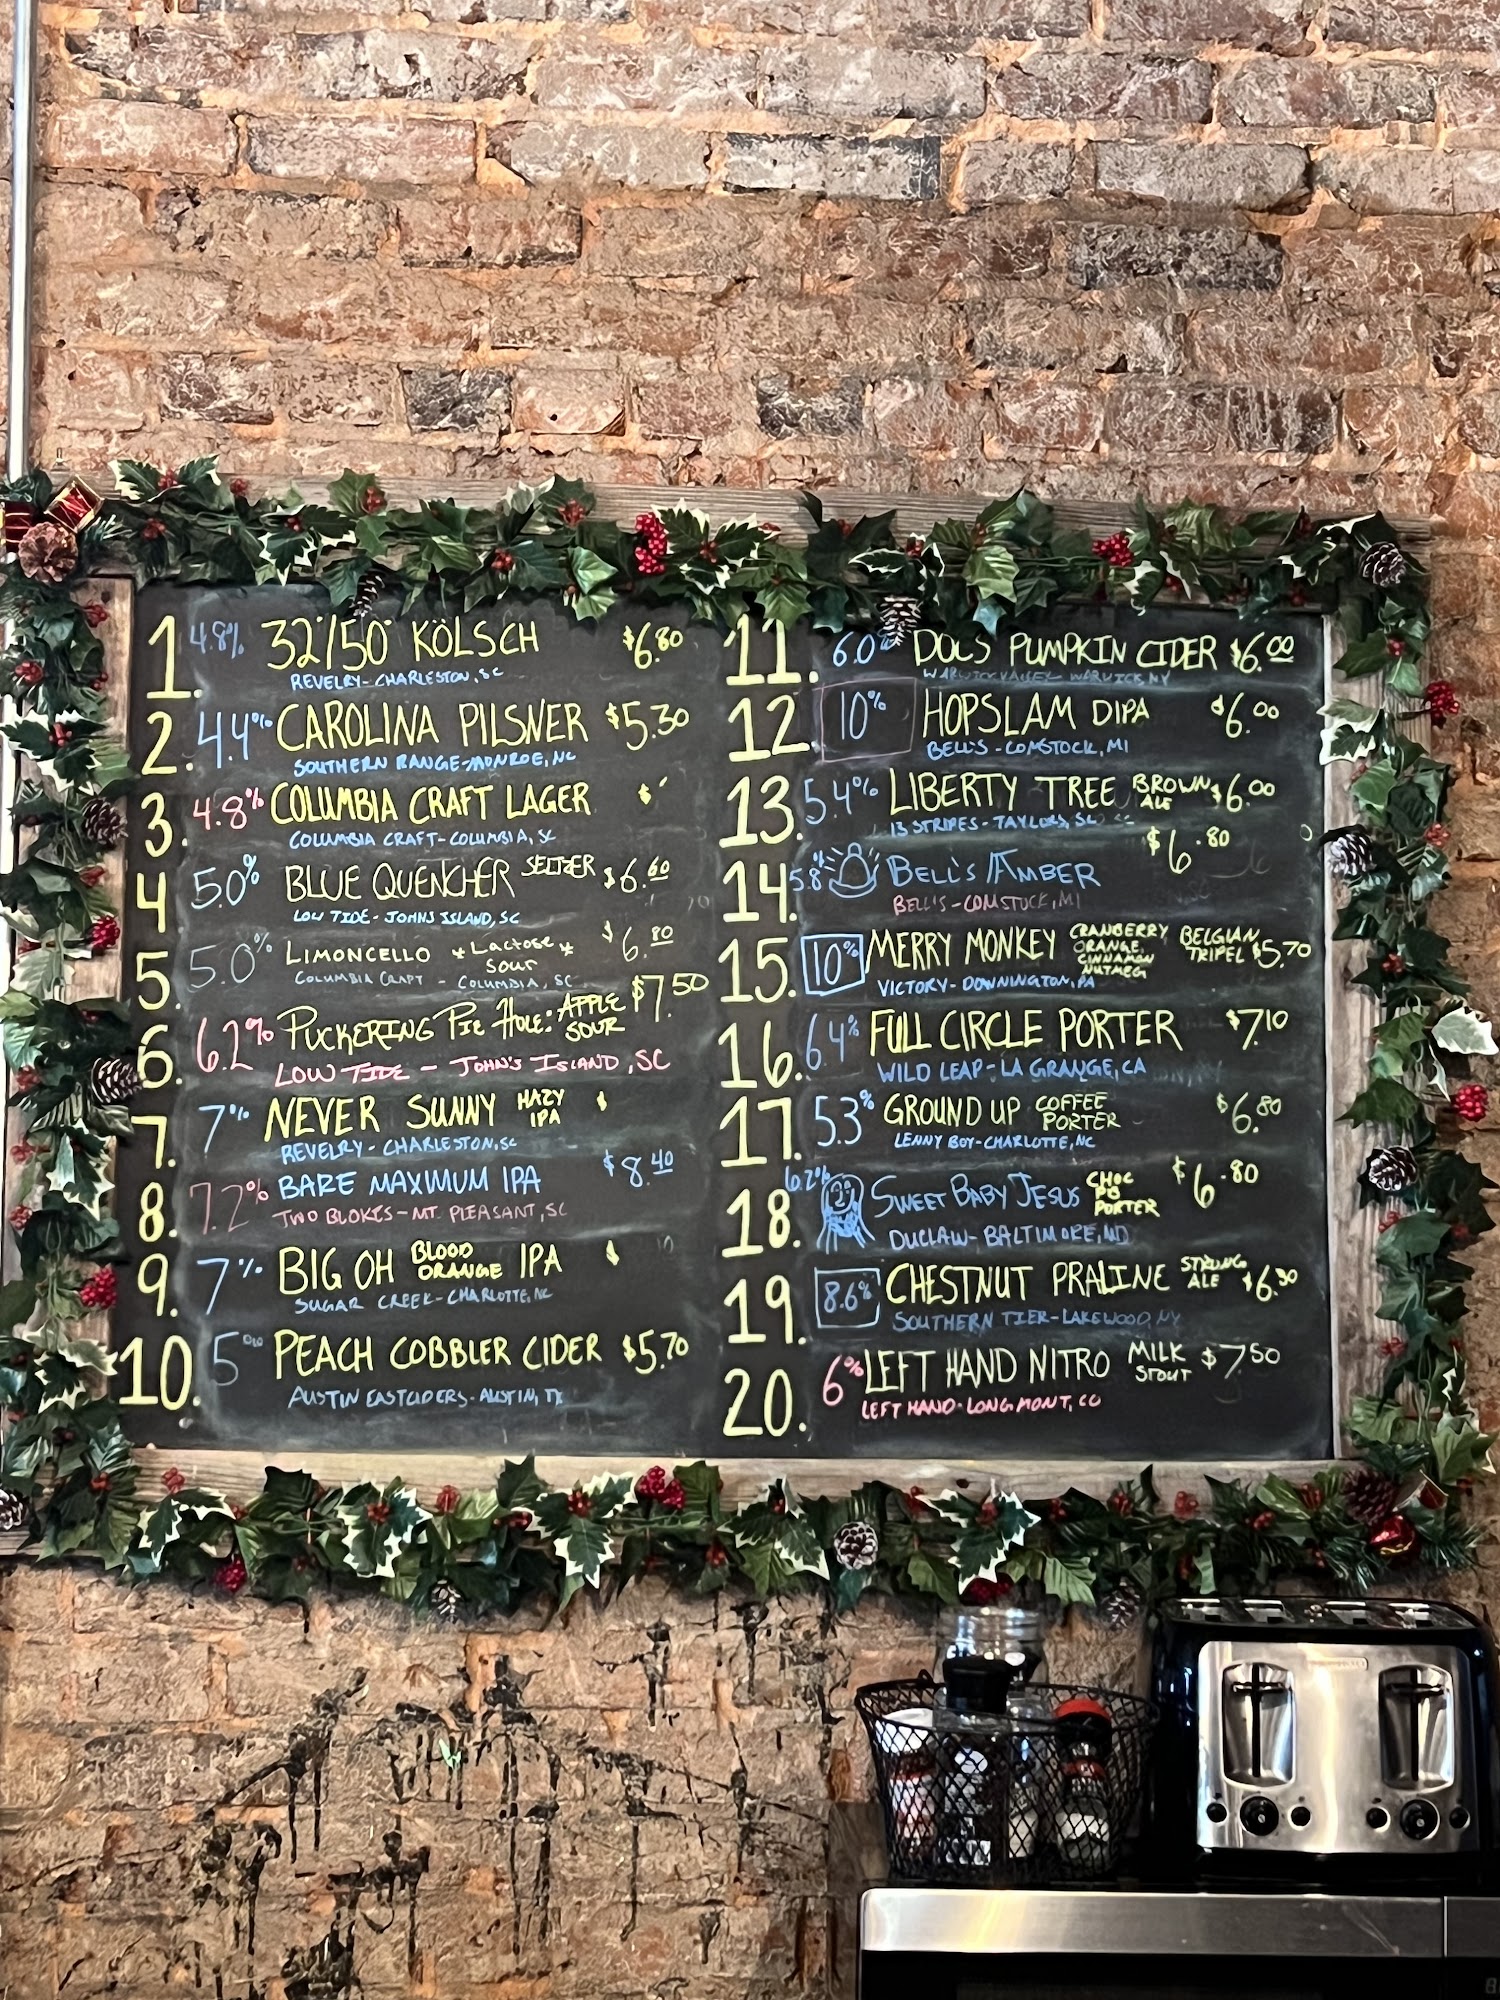 1. 4.8% 32°/50° KÖLSCH $6.80
REVELRY - CHARLESTON, SC
2. 4.4% CAROLINA PILSNER $5.30
SOUTHERN RANGE - MONROE, NC
3. 4.8% COLUMBIA CRAFT LAGER $
COLUMBIA CRAFT - COLUMBIA, SC
4. 5.0% BLUE QUENCHER SELTZER $6.60
LOW TIDE - JOHNS ISLAND, SC
5. 5.0% LIMONCELLO *LACTOSE* SOUR $6.80
COLUMBIA CRAFT - COLUMBIA, SC
6. 6.2% PUCKERING PIE HOLE: APPLE SOUR $7.50
LOW TIDE - JOHN'S ISLAND, SC
7. 7% NEVER SUNNY HAZY IPA $
REVELRY - CHARLESTON, SC
8. 7.2% BARE MAXIMUM IPA $8.40
TWO BLOKES - MT. PLEASANT, SC
9. 7% BIG OH BLOOD ORANGE IPA $
SUGAR CREEK - CHARLOTTE, NC
10. 5% PEACH COBBLER CIDER $5.70
AUSTIN EASTCIDERS - AUSTIN, TX
11. 6.0% DOC'S PUMPKIN CIDER $6.00
WARWICK, NY
12. 10% HOPSLAM DIPA $6.00
BELL'S - COMSTOCK, MI
13. 5.4% LIBERTY TREE BROWN ALE $6.00
13 STRIPES - TAYLORS, SC
14. 5.8% BELL'S AMBER $6.80
BELL'S - COMSTOCK, MI
15. 10% MERRY MONKEY CRANBERRY ORANGE, CINNAMON NUTMEG BELGIAN TRIPEL $5.70
VICTORY - DOWNINGTON, PA
16. 6.4% FULL CIRCLE PORTER $7.10
WILD LEAP - LA GRANGE, CA
17. 5.3% GROUND UP COFFEE PORTER $6.80
LENNY BOY - CHARLOTTE, NC
18. 6.2% SWEET BABY JESUS CHOC PB PORTER $6.80
DUCLAW - BALTIMORE, MD
19. 8.6% CHESTNUT PRALINE STRONG ALE $6.30
SOUTHERN TIER - LAKEWOOD, NY
20. 6% LEFT HAND NITRO MILK STOUT $7.50
LEFT HAND - LONGMONT, CO